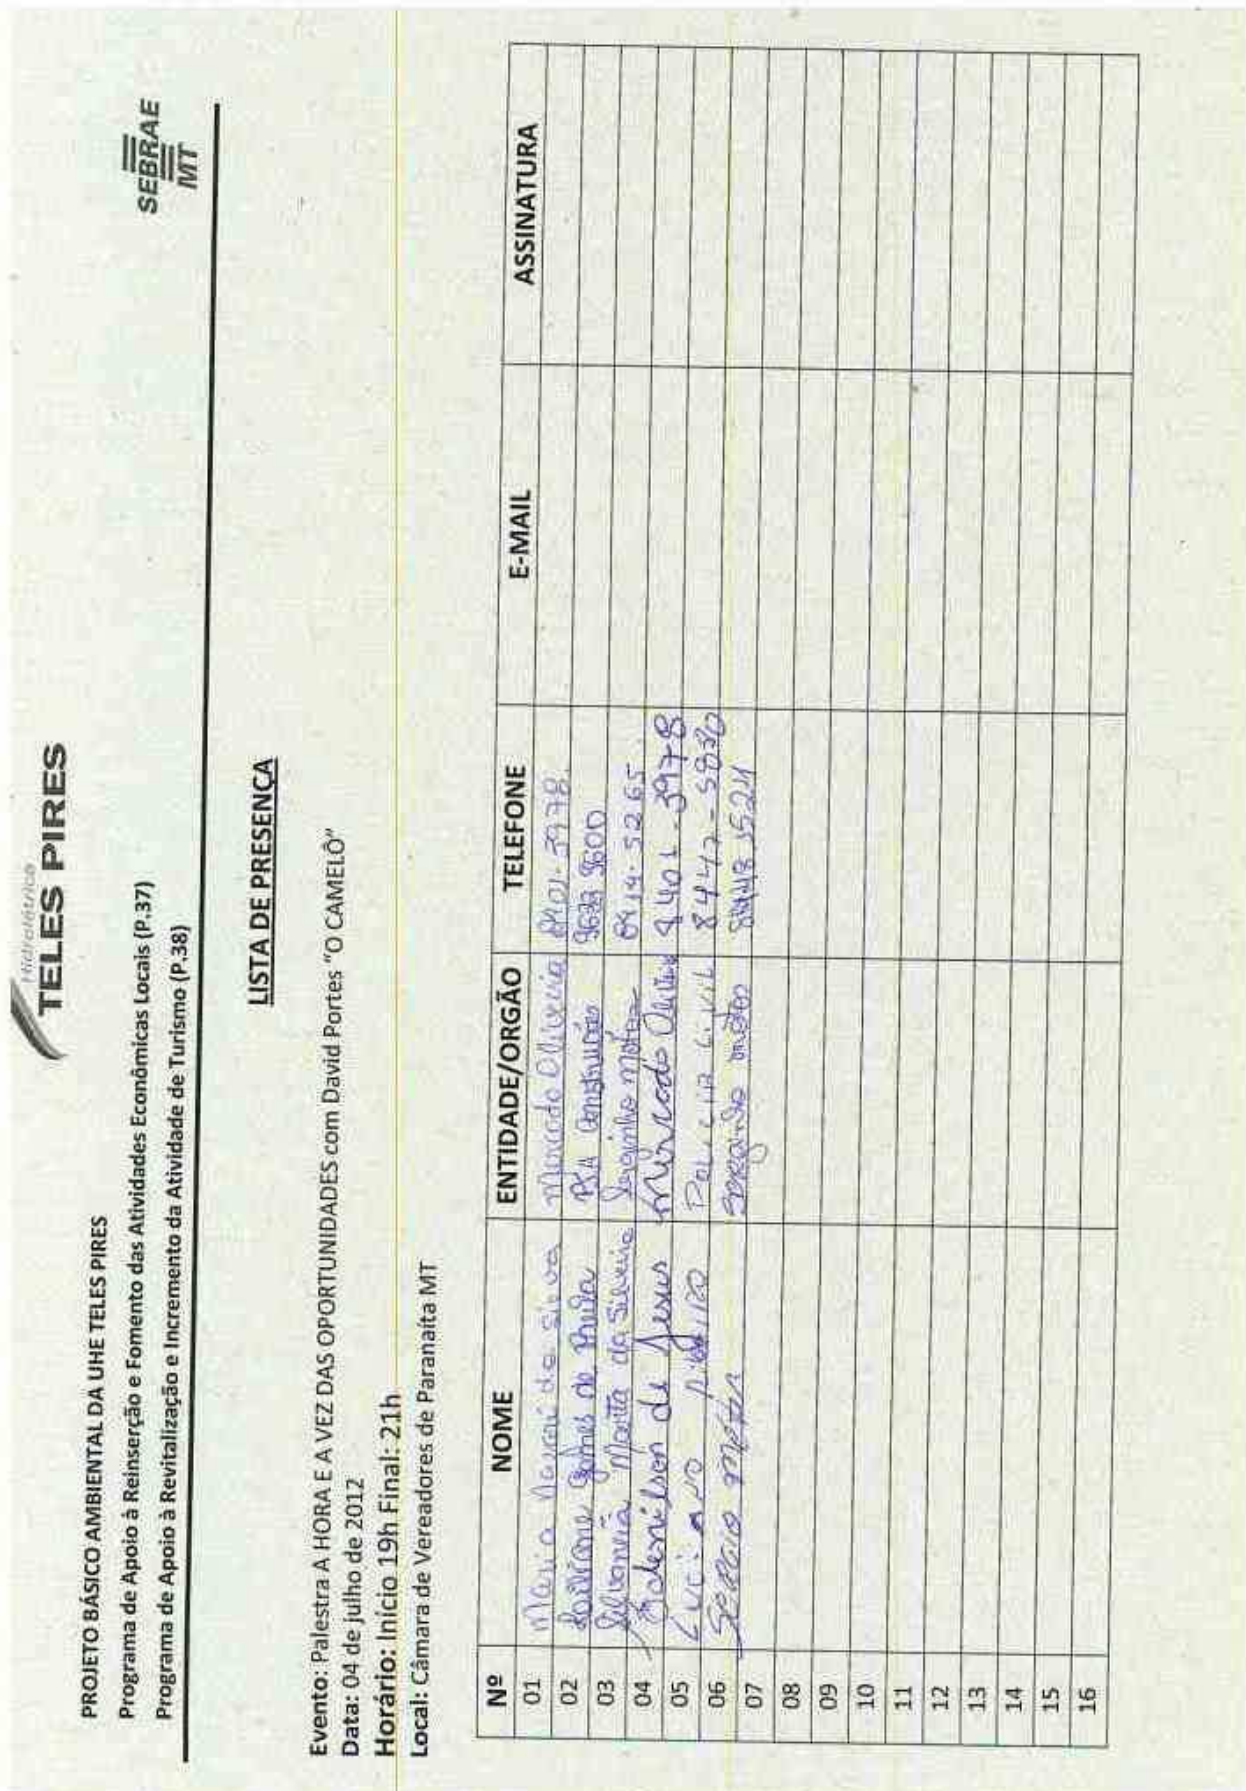 Hidrelétrica
TELES PIRES
PROJETO BÁSICO AMBIENTAL DA UHE TELES PIRES
Programa de Apoio à Reinserção e Fomento das Atividades Econômicas Locais (P.37)
Programa de Apoio à Revitalização e Incremento da Atividade de Turismo (P.38)
SEBRAE
MT
LISTA DE PRESENÇA
Evento: Palestra A HORA E A VEZ DAS OPORTUNIDADES com David Portes "O CAMELÔ"
Data: 04 de julho de 2012
Horário: Início 19h Final: 21h
Local: Câmara de Vereadores de Paranaíta MT
Nº NOME ENTIDADE/ORGÃO TELEFONE E-MAIL ASSINATURA
01 Maria da Silva Mercado Oliveira 8401-3978
02 Gomes de P/A Construções
03 Silvania Marta da Silveira Serginho Motos 5265
04 Edenilson de Jesus Mercado 8401-3978
05 Luciano Policia Civil
06 Sergio Serginho Motos
07
08
09
10
11
12
13
14
15
16